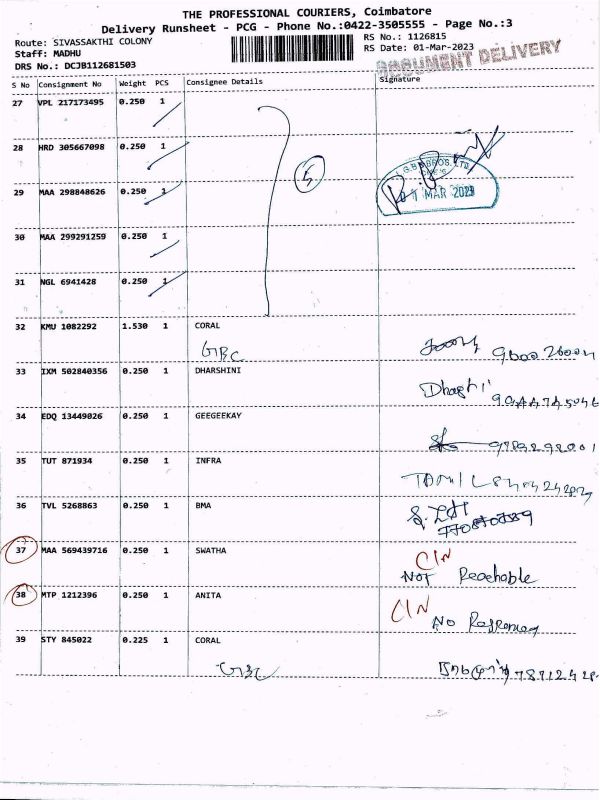 THE PROFESSIONAL COURIERS, Coimbatore
Delivery Runsheet - PCG - Phone No.:0422-3505555 - Page No.:3
Route: SIVASSAKTHI COLONY RS No.: 1126815
Staff: MADHU RS Date: 01-Mar-2023
DRS No.: DCJB112681503 DOCUMENT DELIVERY
S No Consignment No Weight PCS Consignee Details Signature
27 VPL 217173495 0.250 1
28 HRD 305667098 0.250 1
5
29 MAA 298848626 0.250 1 01 MAR 2023
30 MAA 299291259 0.250 1
31 NGL 6941428 0.250 1
32 KMU 1082292 1.530 1 CORAL
GBC
33 IXM 502840356 0.250 1 DHARSHINI
34 EDQ 13449026 0.250 1 GEEGEEKAY
35 TUT 871934 0.250 1 INFRA
36 TVL 5268863 0.250 1 BMA
37 MAA 569439716 0.250 1 SWATHA CIN
Not Reachable
38 MTP 1212396 0.250 1 ANITA CIN
No
39 STY 845022 0.225 1 CORAL
GBC